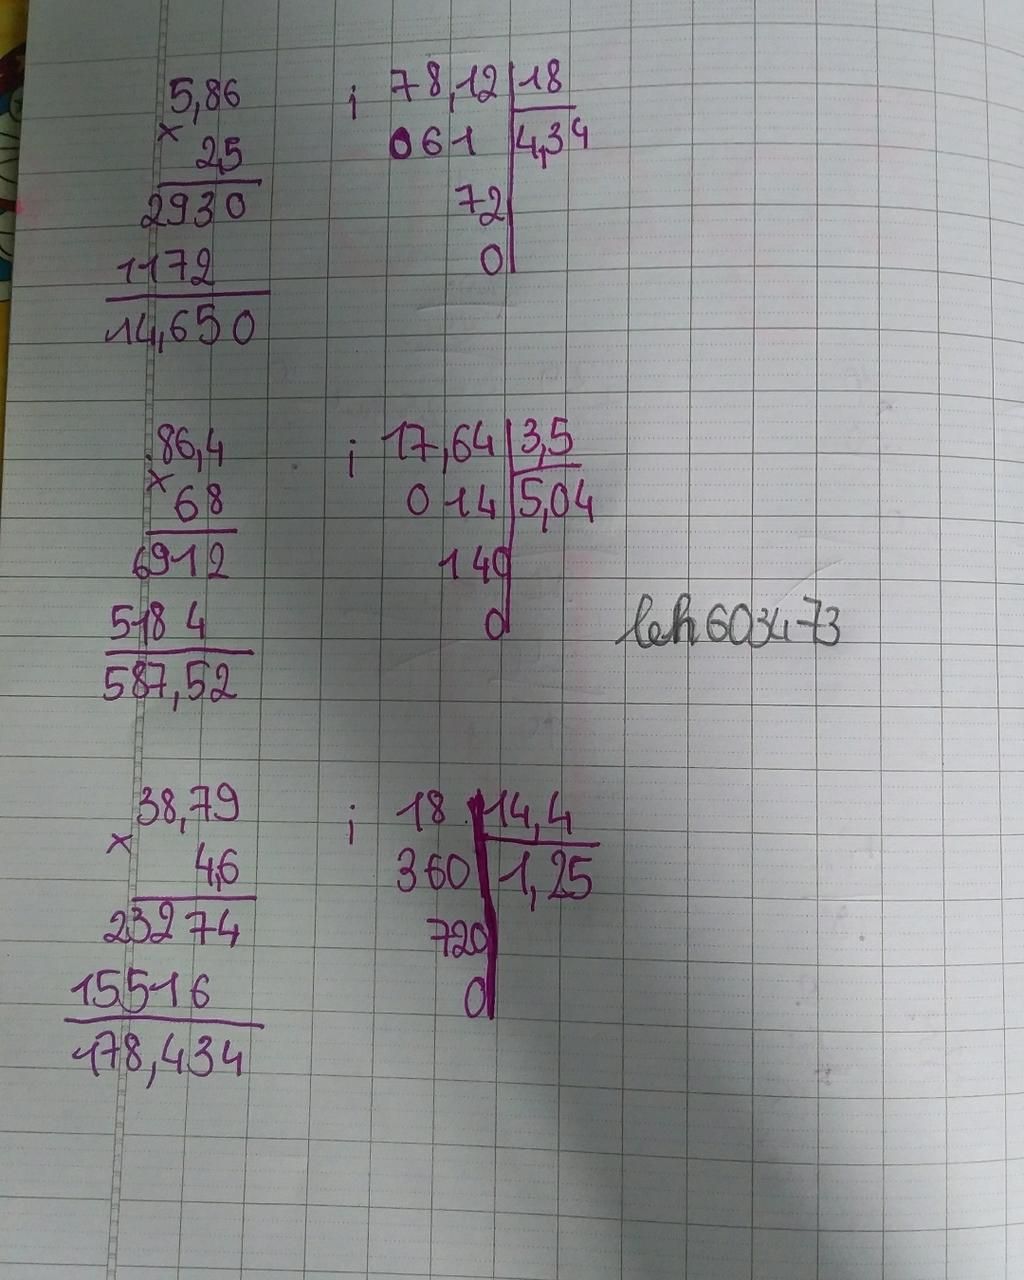 5,86
× 2,5
2930
1172
14,650
; 78,12 18
061 4,34
72
0
86,4
× 68
6912
518 4
587,52
; 17,64 3,5
0 14 5,04
140
0
leh603473
38,79
× 4,6
23274
15516
178,434
; 18 14,4
360 1,25
720
0